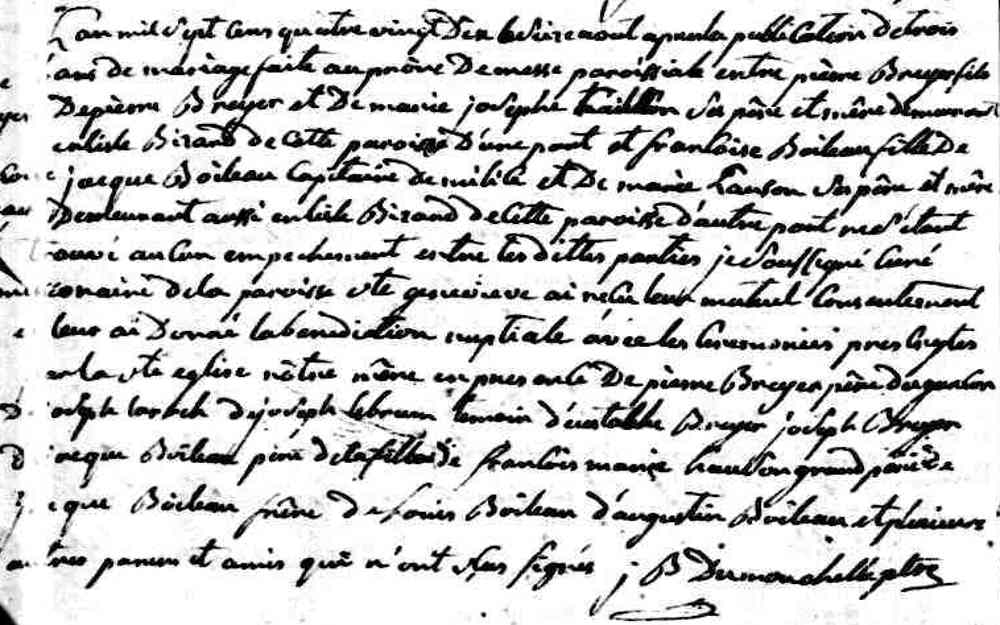 L'an mil sept cens quatre vingt Dex le seize aout apres la publication de trois
bans de mariage faite au prône De messe paroissiale entre pierre Breyer fils
De pierre Breyer et De marie josephe ses père et mère demeurant
en lisle Bizard de cette paroisse D'une part et francoise Boileau fille De
jacque Boileau Capitaine de milice et De marie Lauson ses père et mère
Demeurant aussi en lisle Bizard de cette paroisse d'autre part ne s'étant
trouvé aucun empechement entre les dittes parties je soussigné Curé
de la paroisse ste genevieve ai reçu leur mutuel Consentement
leur ai Donné la benediction nuptiale avec les Ceremonies prescrites
par la ste eglise nôtre mère en presence De pierre Breyer père du garcon
joseph de joseph lebrun temoin d'eustache Breyer joseph Breyer
jacque Boileau père de la fille de francois marie grand père de
jacque Boileau frère De Louis Boileau d'augustin Boileau et plusieurs
autres parens et amis qui n'ont sçus signés j B Dumouchelle ptre